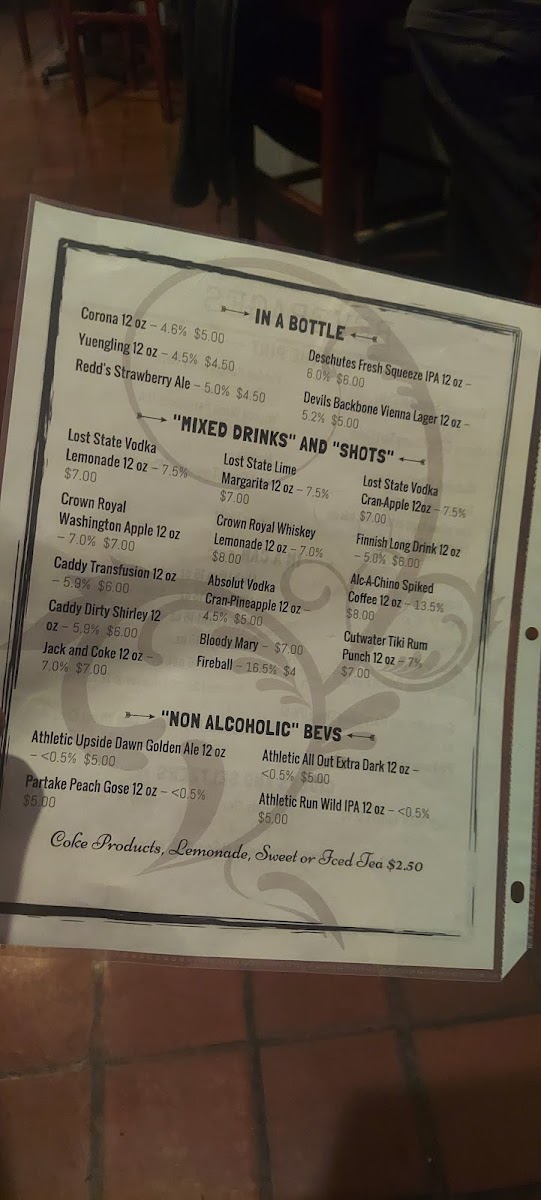 IN A BOTTLE
Corona 12 oz – 4.6% $5.00
Yuengling 12 oz – 4.5% $4.50
Redd's Strawberry Ale – 5.0% $4.50
Deschutes Fresh Squeeze IPA 12 oz –
6.0% $6.00
Devils Backbone Vienna Lager 12 oz –
5.2% $5.00
"MIXED DRINKS" AND "SHOTS"
Lost State Vodka
Lemonade 12 oz – 7.5%
$7.00
Crown Royal
Washington Apple 12 oz
– 7.0% $7.00
Caddy Transfusion 12 oz
– 5.9% $6.00
Caddy Dirty Shirley 12
oz – 5.9% $6.00
Jack and Coke 12 oz –
7.0% $7.00
Lost State Lime
Margarita 12 oz – 7.5%
$7.00
Crown Royal Whiskey
Lemonade 12 oz – 7.0%
$8.00
Absolut Vodka
Cran-Pineapple 12 oz –
4.5% $5.00
Bloody Mary – $7.00
Fireball – 16.5% $4
Lost State Vodka
Cran-Apple 12oz – 7.5%
$7.00
Finnish Long Drink 12 oz
– 5.0% $6.00
Alc-A-Chino Spiked
Coffee 12 oz – 13.5%
$8.00
Cutwater Tiki Rum
Punch 12 oz – 7%
$7.00
"NON ALCOHOLIC" BEVS
Athletic Upside Dawn Golden Ale 12 oz
– <0.5% $5.00
Partake Peach Gose 12 oz – <0.5%
$5.00
Athletic All Out Extra Dark 12 oz –
<0.5% $5.00
Athletic Run Wild IPA 12 oz – <0.5%
$5.00
Coke Products, Lemonade, Sweet or Iced Tea $2.50